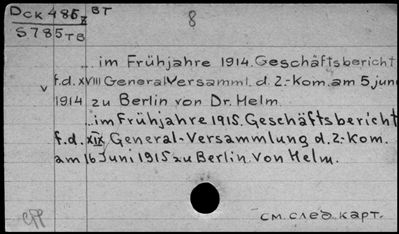 Dck 485z BT
S785TB
8
... im Frühjahre 1914. Geschäftsbericht
f.d. XVIII General Versamml. d. 2.-Kom. am 5 juni
v
1914 zu Berlin von Dr. Helm.
... im Frühjahre 1915. Geschäftsbericht
f.d. XIX General-Versammlung d. 2-Kom.
am 16 Juni 1915 zu Berlin. Von Helm.
см. след. карт.